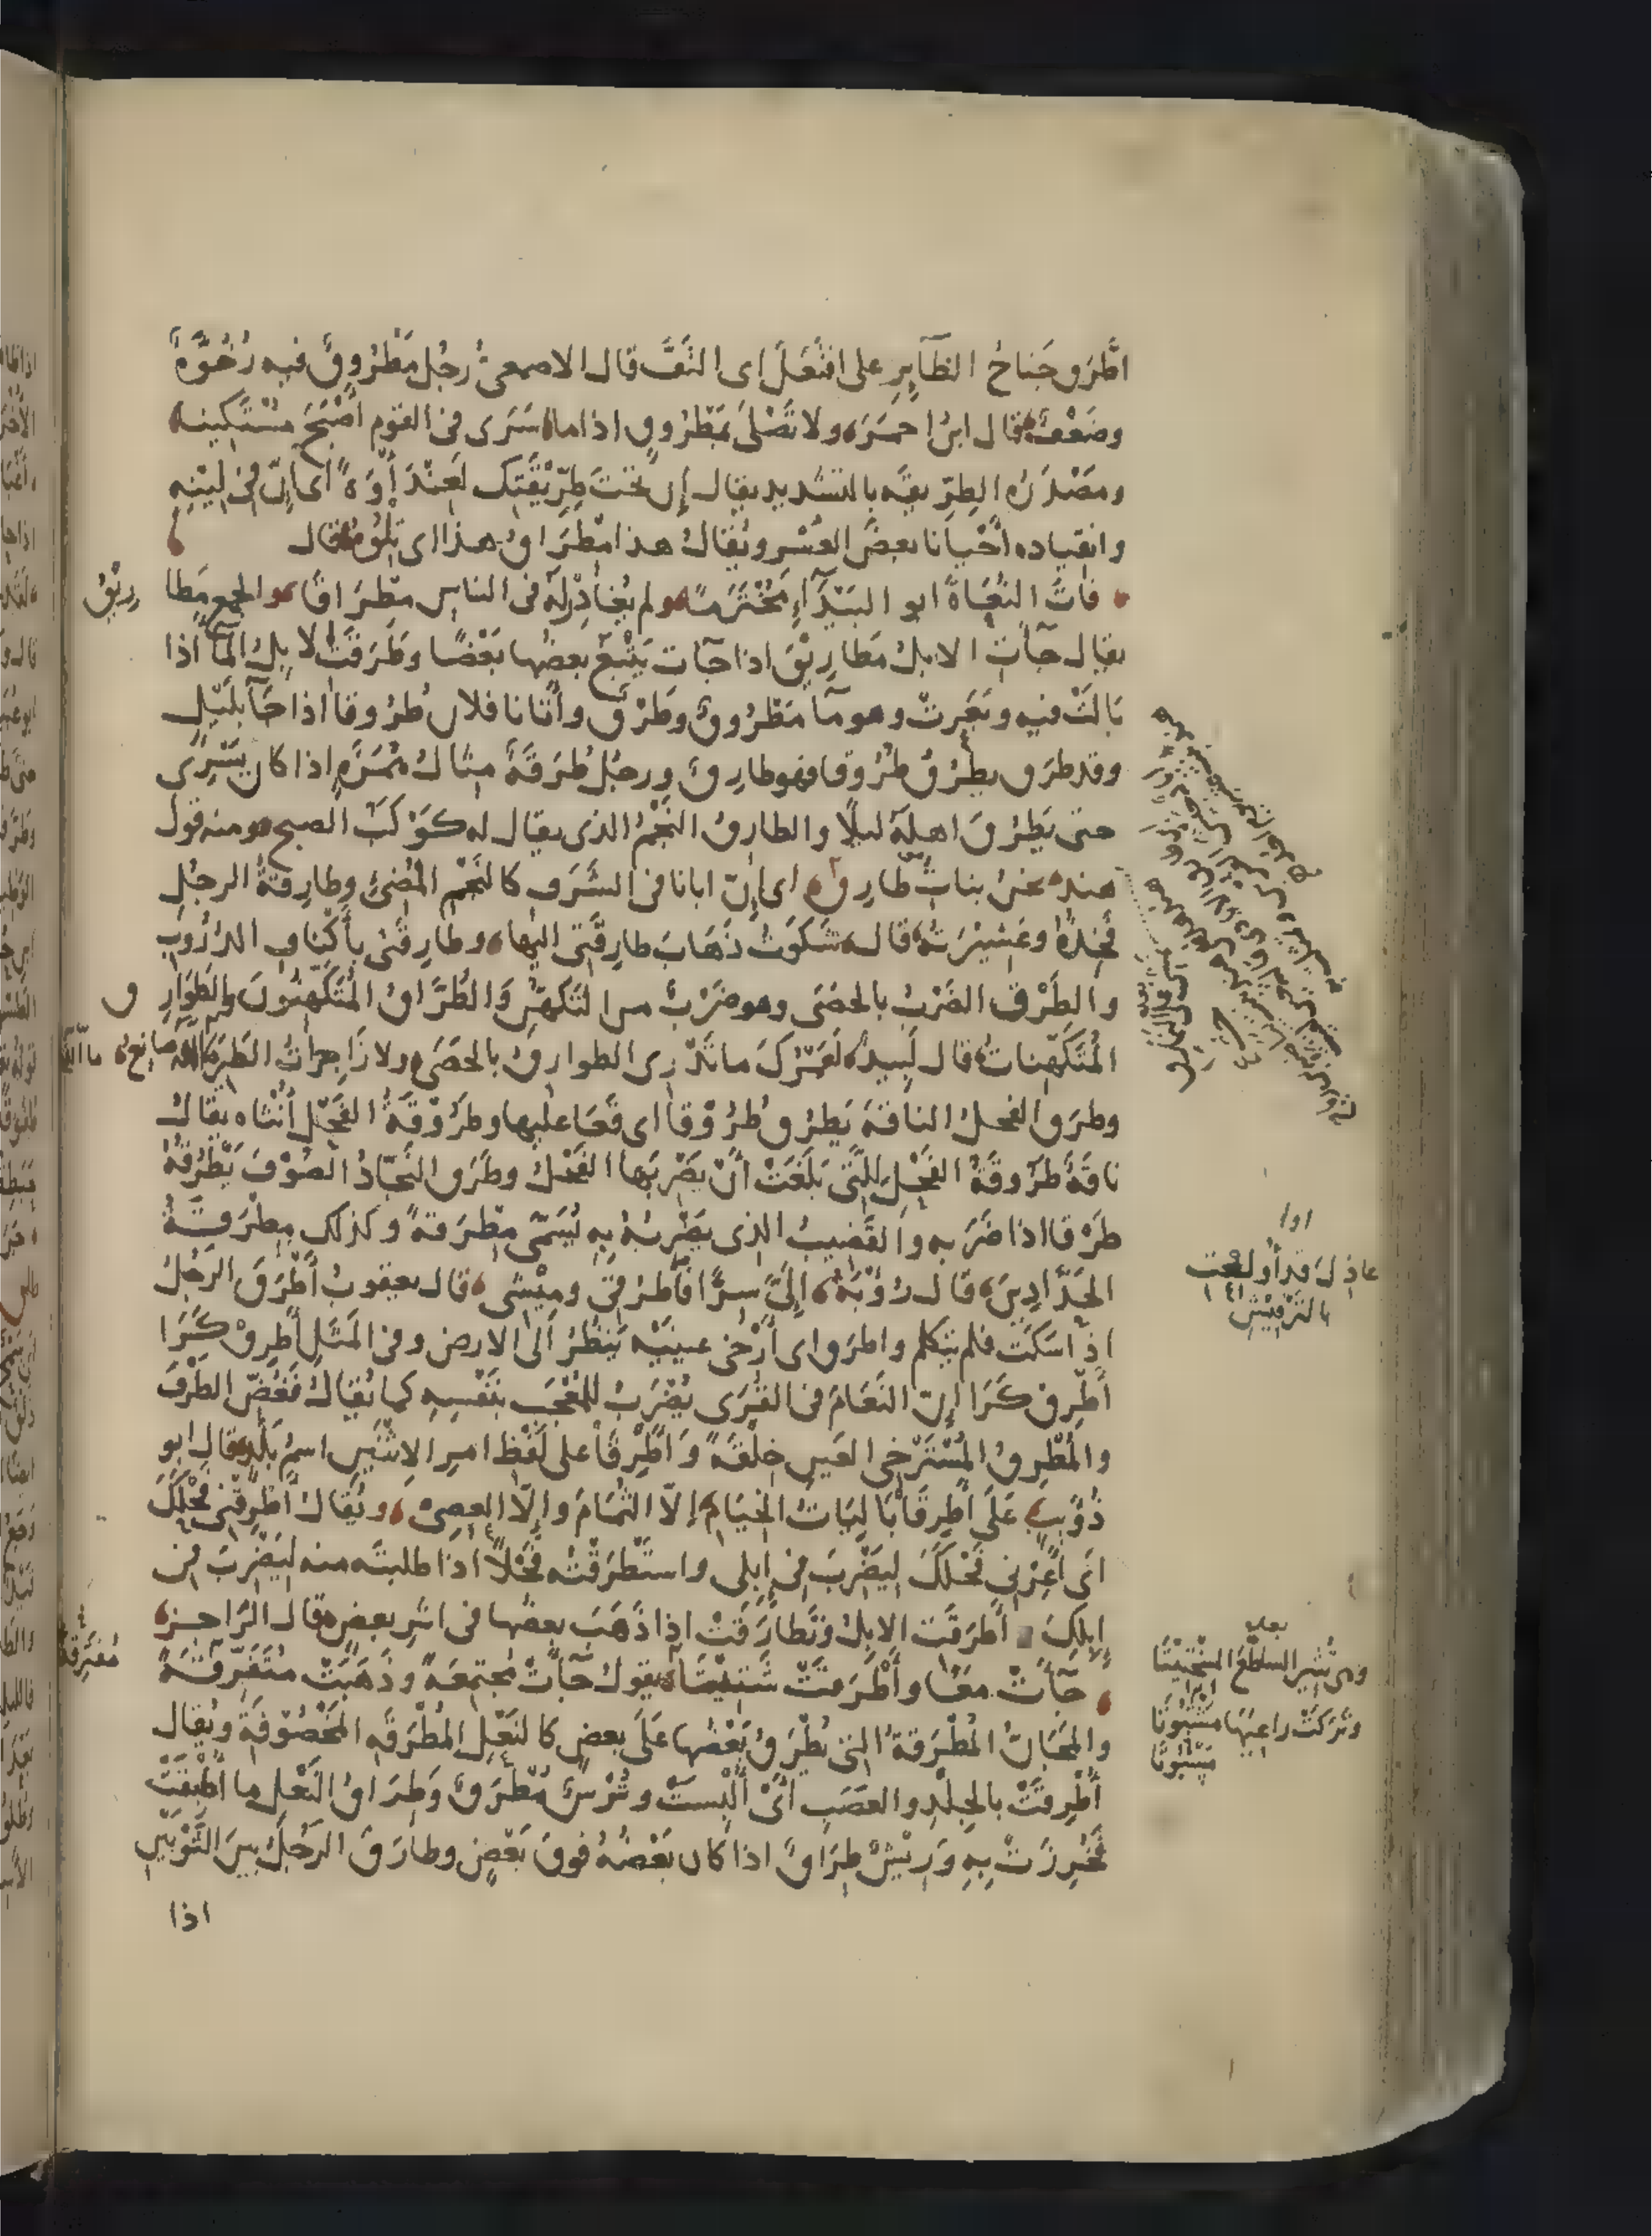 اطّرق جَناحُ الطآيِرِ على افتَعَلَ اى التَفَّ قال الاصمعىُّ رجُل مَطْرُوقٌ فيه رُخْوَّةٌ
وضَعْفٌ قال ابنُ احمَرَ ولا تَصْلَىْ بمَطْرُوقٍ اذا ما سَرَى فى القوم اصْبَحَ مُسْتكينا
ومَصْدَرُه الطِرِّيقَه بالتشديد يقال إن تحتَ طِرِّيْقَتِك لَعِنْدَأْوَةً اى إنّ فى لِيْنِه
وانقياده أحْيانا بعضَ العُسْر ويُقالُ هذا مِطْرَاقُ هذا اى تِلْوُهُ قال
فاتَ البُغَاةَ ابو البَيْدَآءِ مُخْتَرَمًا ولم يُغادِرْ لهُ فى الناس مِطْرَاقًا والجمع مَطا
رِيْقُ
يقال جآت الابلُ مَطارِيْقَ اذا جآت يَتْبَعُ بعضُها بَعْضًا وطَرَقَتْ الابِلُ المآ اذا
بَالَتْ فيه وبَعَرتْ وهو مآ مَطْرُوقٌ وطَرْقٌ وأتانا فلان طُرُوقا اذا جَآ بِلَيْلٍ
وقد طرَق يطرُقُ طُرُوقا فهو طارِقٌ ورجُل طُرَقَةٌ مثالُ هُمَزَةٍ اذا كان يَسْرِى
حتى يَطرُقَ اهلَهُ ليلًا والطارقُ النَجْمُ الذى يقال له كَوْكَبُ الصبح ومنه قولُ
هند نحن بناتُ طارِقْ اى إنّ ابانا فى الشَرَف كالنَجْمِ المُضِئِ وطارِقةُ الرجُلِ
فَخِذُهُ وعَشِيْرَتهُ قال شَكَوتُ ذَهَابَ طارِقَتى اليها وطارِقَتى بأكْنافِ الدُرُوبِ
والطَرْقُ الضَرْبُ بالحصَى وهو ضَرْبٌ من التَكهُّنِ والطُرَّاقُ المُتَكَهِّنُونَ والطَوَارِ
ق
المُتَكَهِّناتُ قال لَبيدٌ لَعَمْرُكَ ما تَدْرِى الطوارقُ بالحَصَى ولا زَاجِراتُ الطَيرِ ما اللهُ صانِعُ
وطرَق الفحلُ الناقةَ يَطرُق طُرُوْقا اى قَعَا عليها وطَرُوْقَةُ الفَحْلِ أُنثاه يقالُ
ناقَةٌ طَرُوقَةُ الفَحْلِ لِلَّتى بَلَغَتْ أنْ يَضْرِبَها الفَحْلُ وطَرَق النَجّادُ الصُوْفَ يَطْرُقُهُ
طَرْقا اذا ضَرَبه والقَضِيبُ الذى يَضْرِبُهُ بِهِ يُسَمّى مِطْرَقةً وكذلك مِطْرَقَةُ
الحَدّادِينَ قال رُؤْبَةُ إلىَّ سِرًّا فاطْرُقى ومِيْشِى قال يعقوبُ أَطْرَقَ الرَجُلُ
اذا سَكَتَ فلم يتكلم واطرَق اى أَرْخى عينَيْه يَنظُرُ الى الارض وفى المَثَلِ أطرِقْ كَرَا
أطْرِقْ كَرَا إنّ النَعَامَ فى القُرَى يُضْرَبُ للمُعْجَبِ بنَفْسِهِ كما يُقالُ فَغُضَّ الطَرْفَ
والمُطْرِقُ المُسْتَرْخى العَينِ خِلْقَةً وَاَطْرِقَا على لَفْظِ امرِ الاِثْنَيْنِ اسمُ بَلَدٍ قال ابو
ذُؤَيبٍ عَلَى أَطْرِقَا بَالِيَاتُ الخِيَامِ إلّا الثُمَامَ وإلّا العِصِىُّ ويُقالُ أَطْرِقْنِى فَحْلَكَ
اى أَعِرْنى فَحْلَكَ لِيَضْرِبَ فى إبلى واستَطْرَقْتُه فَحْلًا اذا طلبتَه منه لِيَضْرِبَ فى
إبِلِكَ أطرَقَت الابلُ وتَطَارَقَتْ اذا ذَهَبَ بعضُها فى اثرِ بعض قال الرَاجزُ
جآتْ مَعًا وأَطْرَقَتْ شَتِيْتَا يقولُ جَآتْ مُجتمِعَةً وذَهَبَتْ مُتَفَرِّقَةً
مُفتَرِقَةً
والمَجَانُّ المُطْرَقةُ التى يُطْرَقُ بَعْضُها عَلَى بعضٍ كالنَعْلِ المُطْرَقَهِ المَخْصُوْفَةِ ويُقال
أُطْرِقَتْ بالجِلْدِ والعصَبِ أىْ أُلْبِسَتْ وتُرْسٌ مُطْرَقٌ وَطِرَاقُ النَعْلِ ما اُطْبِقَتْ
فَخُرِزَتْ بِهِ وَرِيْشٌ طِرَاقٌ اذا كان بَعْضُهُ فَوقَ بَعْضٍ وطارَقَ الرَجُلُ بينَ الثَوْبَيْنِ
اذا
عاذِلَ قد أُولِعْتِ
بالتَرْقِيْشِ
بعده
وهى تُثيرُ الساطِعَ السِخْتِيْتَا
وتَرَكَتْ راعِيَها
مَسْبُوتَا